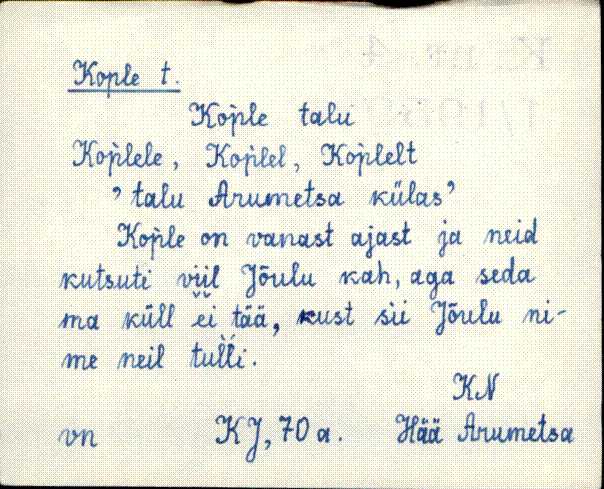 Kople t.
Kop̀le talu
Kop̀lele, Kop̀lel, Kop̀lelt
’talu Arumetsa külas’
Kop̀le on vanast ajast ja neid
kutsuti viil Jõulu kah, aga seda
ma küll ei tää, kust sìi Jõulu ni-
me neil tulĺi.
KN
vn KJ, 70 a. Hää Arumetsa